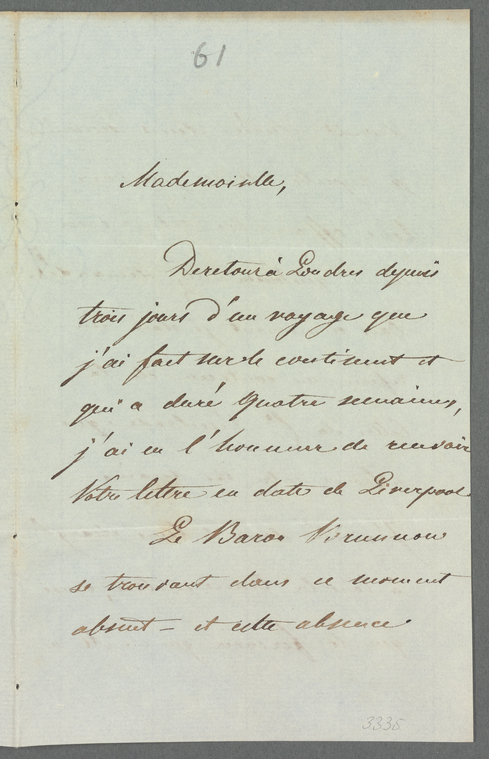 61
Mademoiselle,
De retour à Londres depuis
trois jours d'un voyage que
j'ai fait sur le continent et
qui a duré quatre semaines,
j'ai eu l'honneur de recevoir
Votre lettre en date de Liverpool.
Le Baron Brunnow
se trouvant dans ce moment
absent – et cette absence
3335